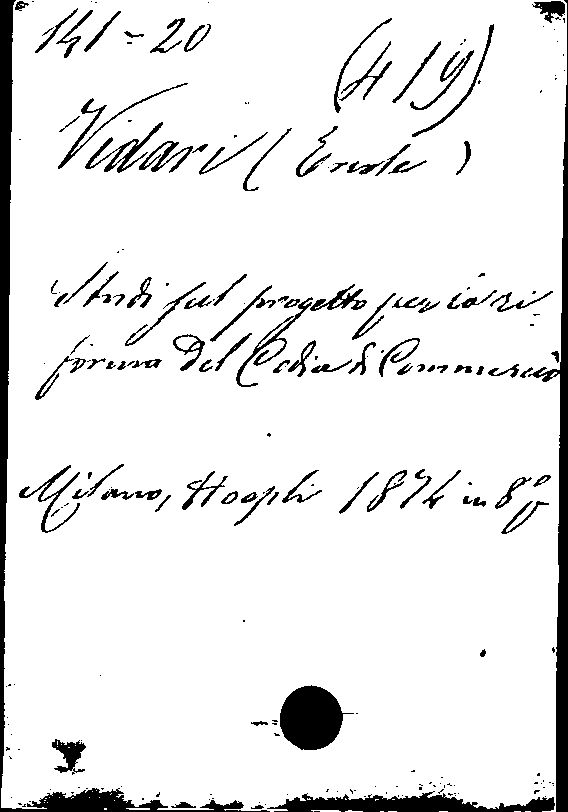 141-20
(419)
Vidari (Ercole)
Studi sul progetto per la ri-
forma del Codice di Commercio
Milano, Hoepli 1874 in 8º